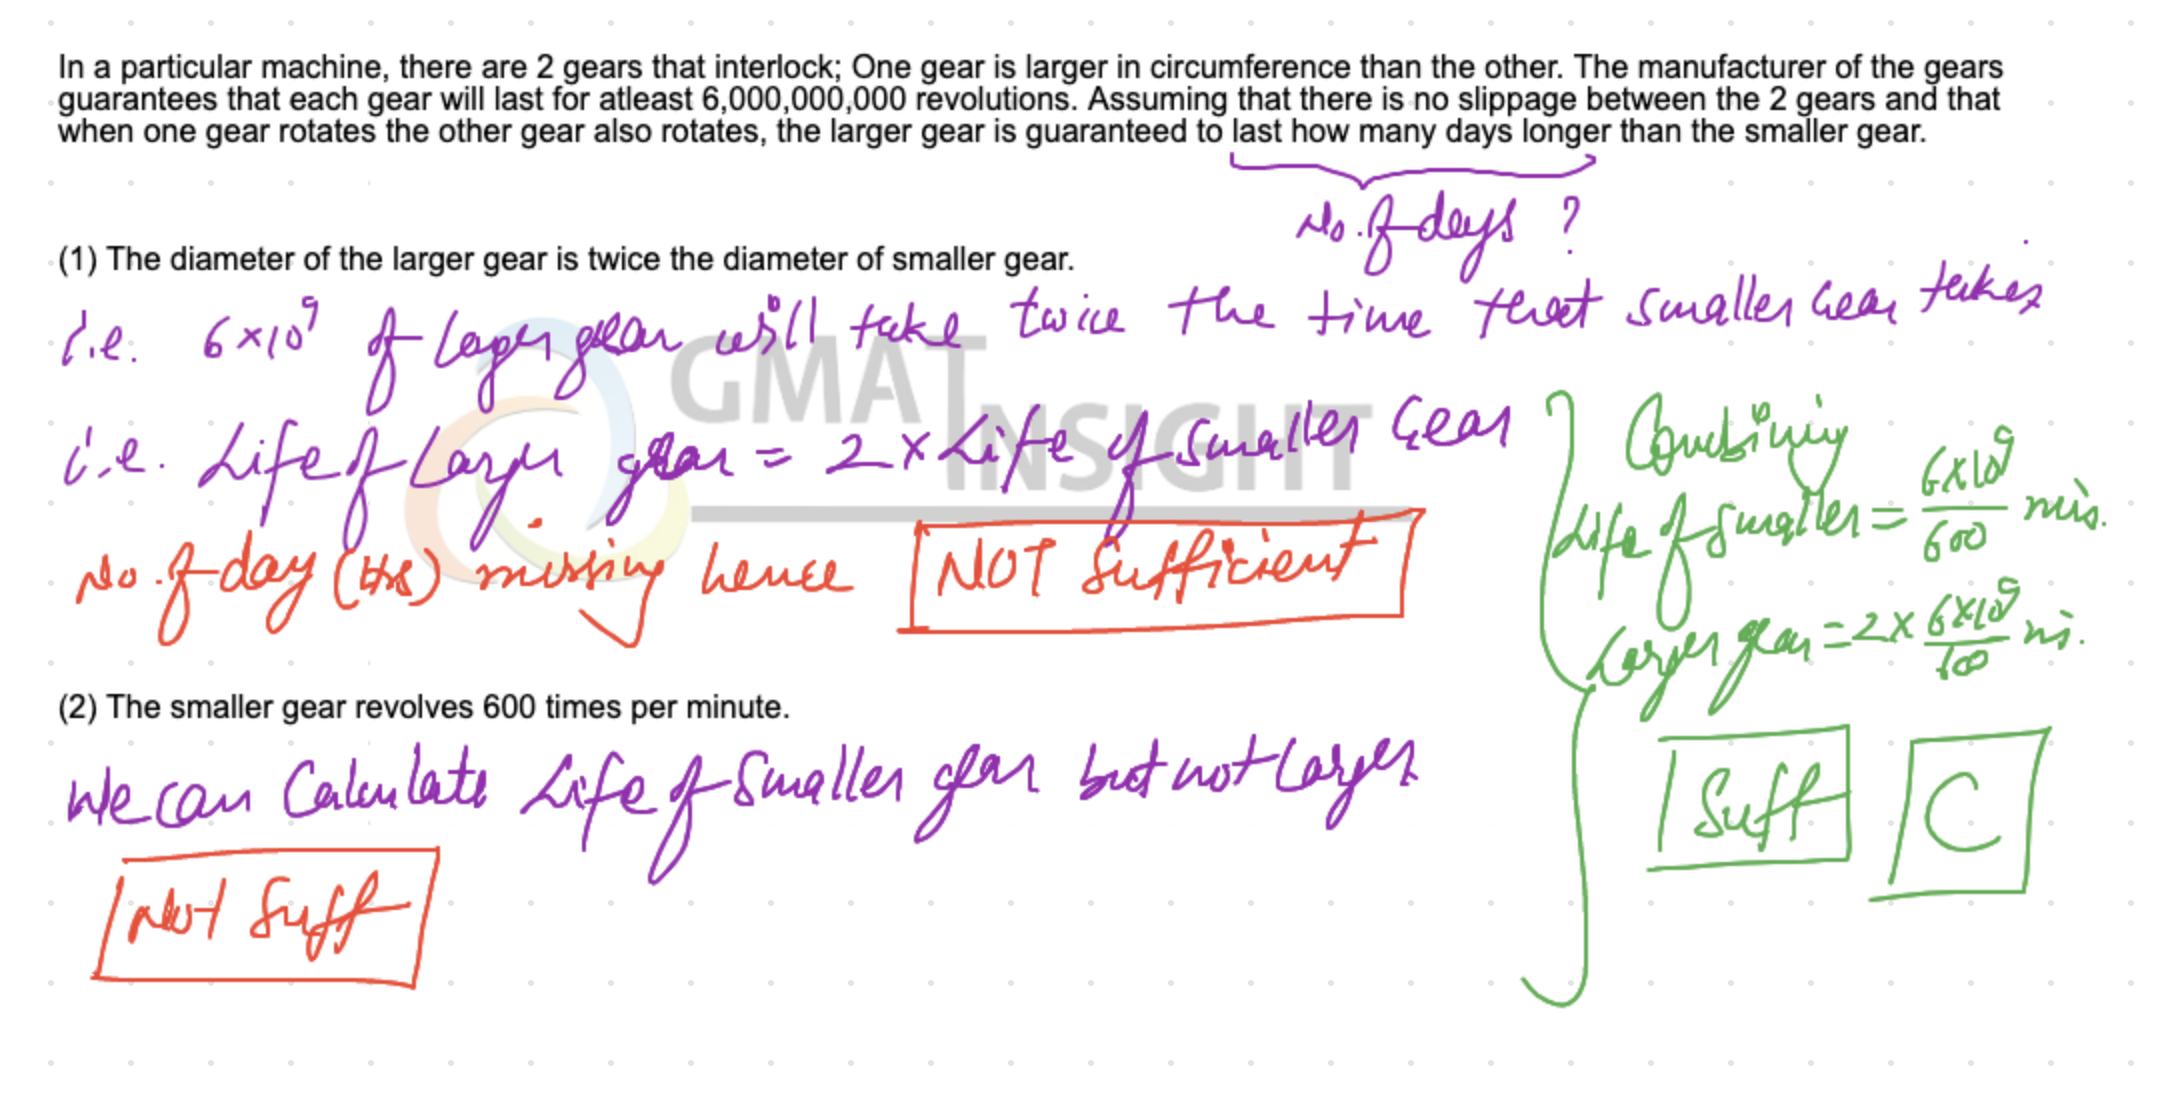 In a particular machine, there are 2 gears that interlock; One gear is larger in circumference than the other. The manufacturer of the gears
guarantees that each gear will last for atleast 6,000,000,000 revolutions. Assuming that there is no slippage between the 2 gears and that
when one gear rotates the other gear also rotates, the larger gear is guaranteed to last how many days longer than the smaller gear.
No. of days ?
(1) The diameter of the larger gear is twice the diameter of smaller gear.
i.e. 6×10⁹ of larger gear will take twice the time that smaller Gear takes
GMAT INSIGHT
i.e. Life of Larger gear = 2 × Life of smaller Gear
No. of day (Hrs) missing hence NOT Sufficient
(2) The smaller gear revolves 600 times per minute.
We can Calculate Life of Smaller gear but not Larger
Not Suff
Combining
Life of Smaller = 6×10⁹/600 mis.
Larger gear = 2× 6×10⁹/600 ms.
Suff C